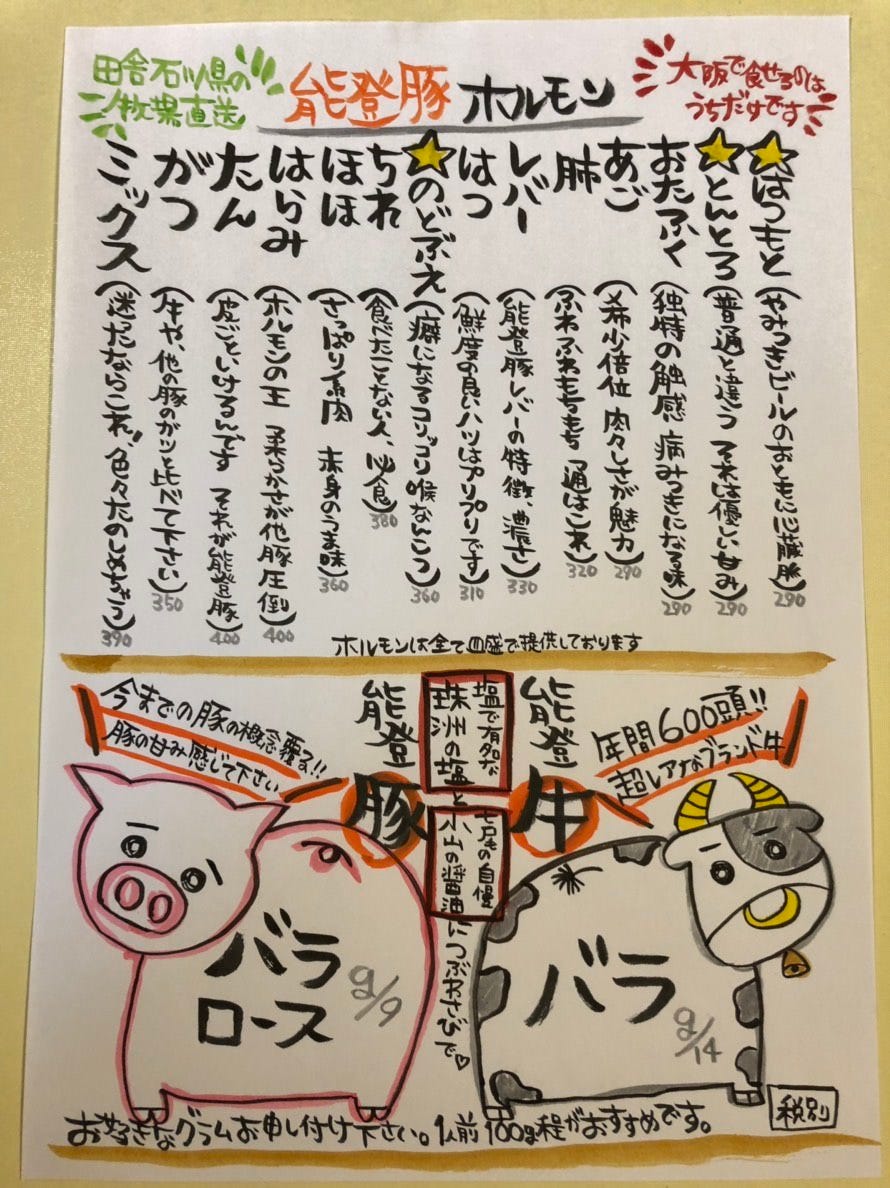 田舎石川県の
牧場直送
能登豚 ホルモン
大阪で食せるのは
うちだけです
はつもと (やみつきビールのおともに心臓脈) 290
とんとろ (普通と違う それは優しい甘み) 290
おたふく (独特の触感 病みつきになる味) 290
あご (希少倍位 肉々しさが魅力) 290
肺 (ふわふわもちもち 通はこれ) 320
レバー (能登豚レバーの特徴、濃さ) 330
はつ (鮮度の良いハツはプリプリです) 310
のどぶえ (癖になるコリッコリ喉なんこつ) 360
ちれ (食べたことない人、必食) 380
ほほ (さっぱり系肉 赤身のうま味) 360
はらみ (ホルモンの王 柔らかさが他豚圧倒) 400
たん (皮ごといけるんです それが能登豚) 400
がつ (牛や、他の豚のガツと比べて下さい) 350
ミックス (迷ったならこれ!! 色々たのしめちゃう) 390
ホルモンは全て皿盛で提供しております
能登牛
年間600頭!!
超レアなブランド牛
バラ
g/14
塩で有名な
珠洲の塩と
七尾の自慢
小山の醤油につぶわさびで♡
能登豚
今までの豚の概念覆る!!
豚の甘み感じて下さい
バラ
ロース
g/9
税別
お好きなグラムお申し付け下さい。1人前100g程がおすすめです。